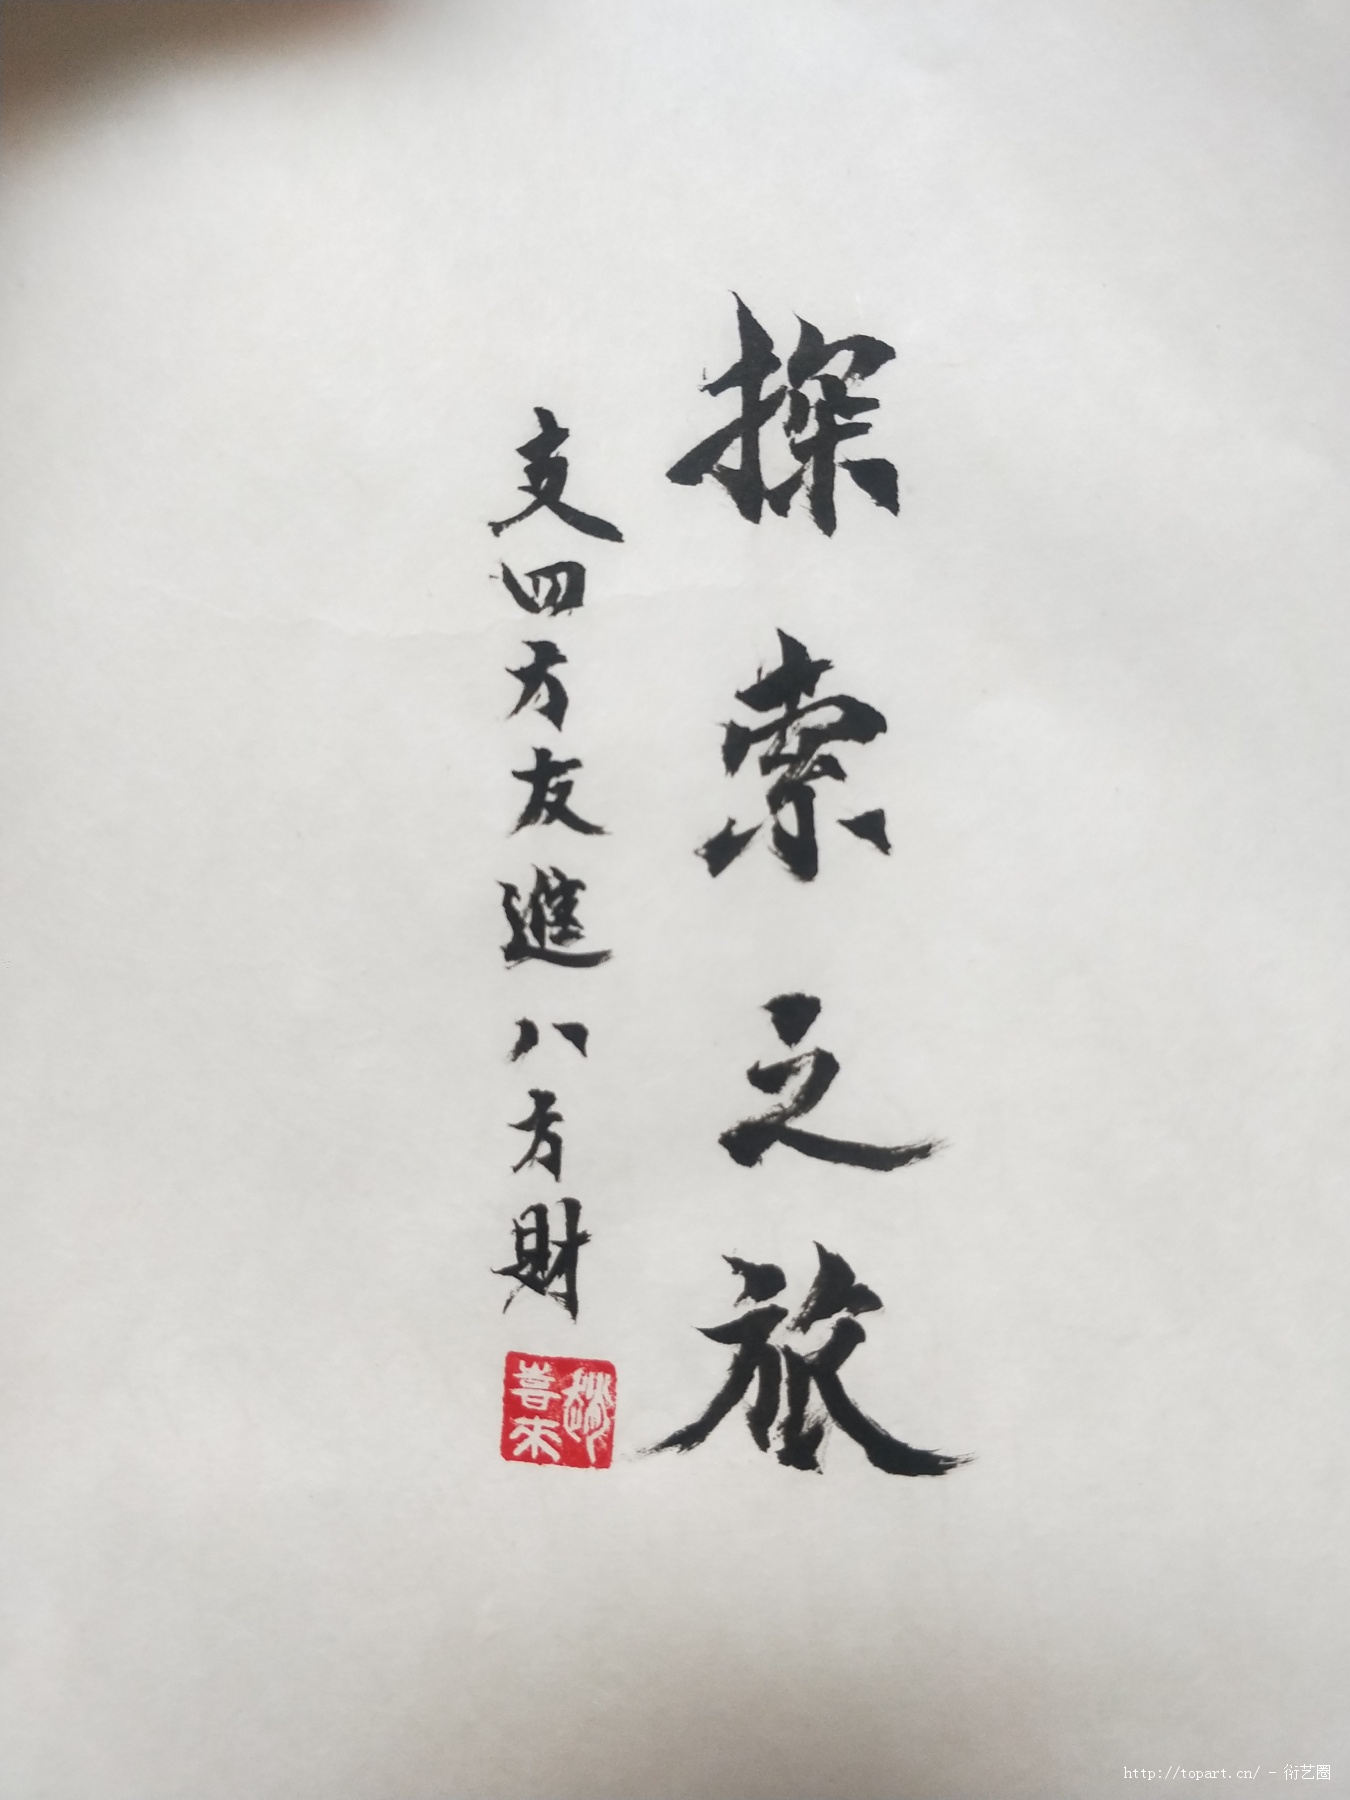 探索之旅
支四方友進八方財
趙喜来
http://topart.cn/ - 衍艺圈